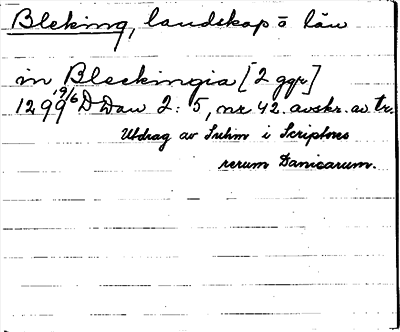 Bleking, landskap ō län
in Bleckingia [2 ggr]
1299 19/6 DDan 2: 5, nr 42. avskr. av tr.
Utdrag av Suhm i Scriptores
rerum Danicarum.